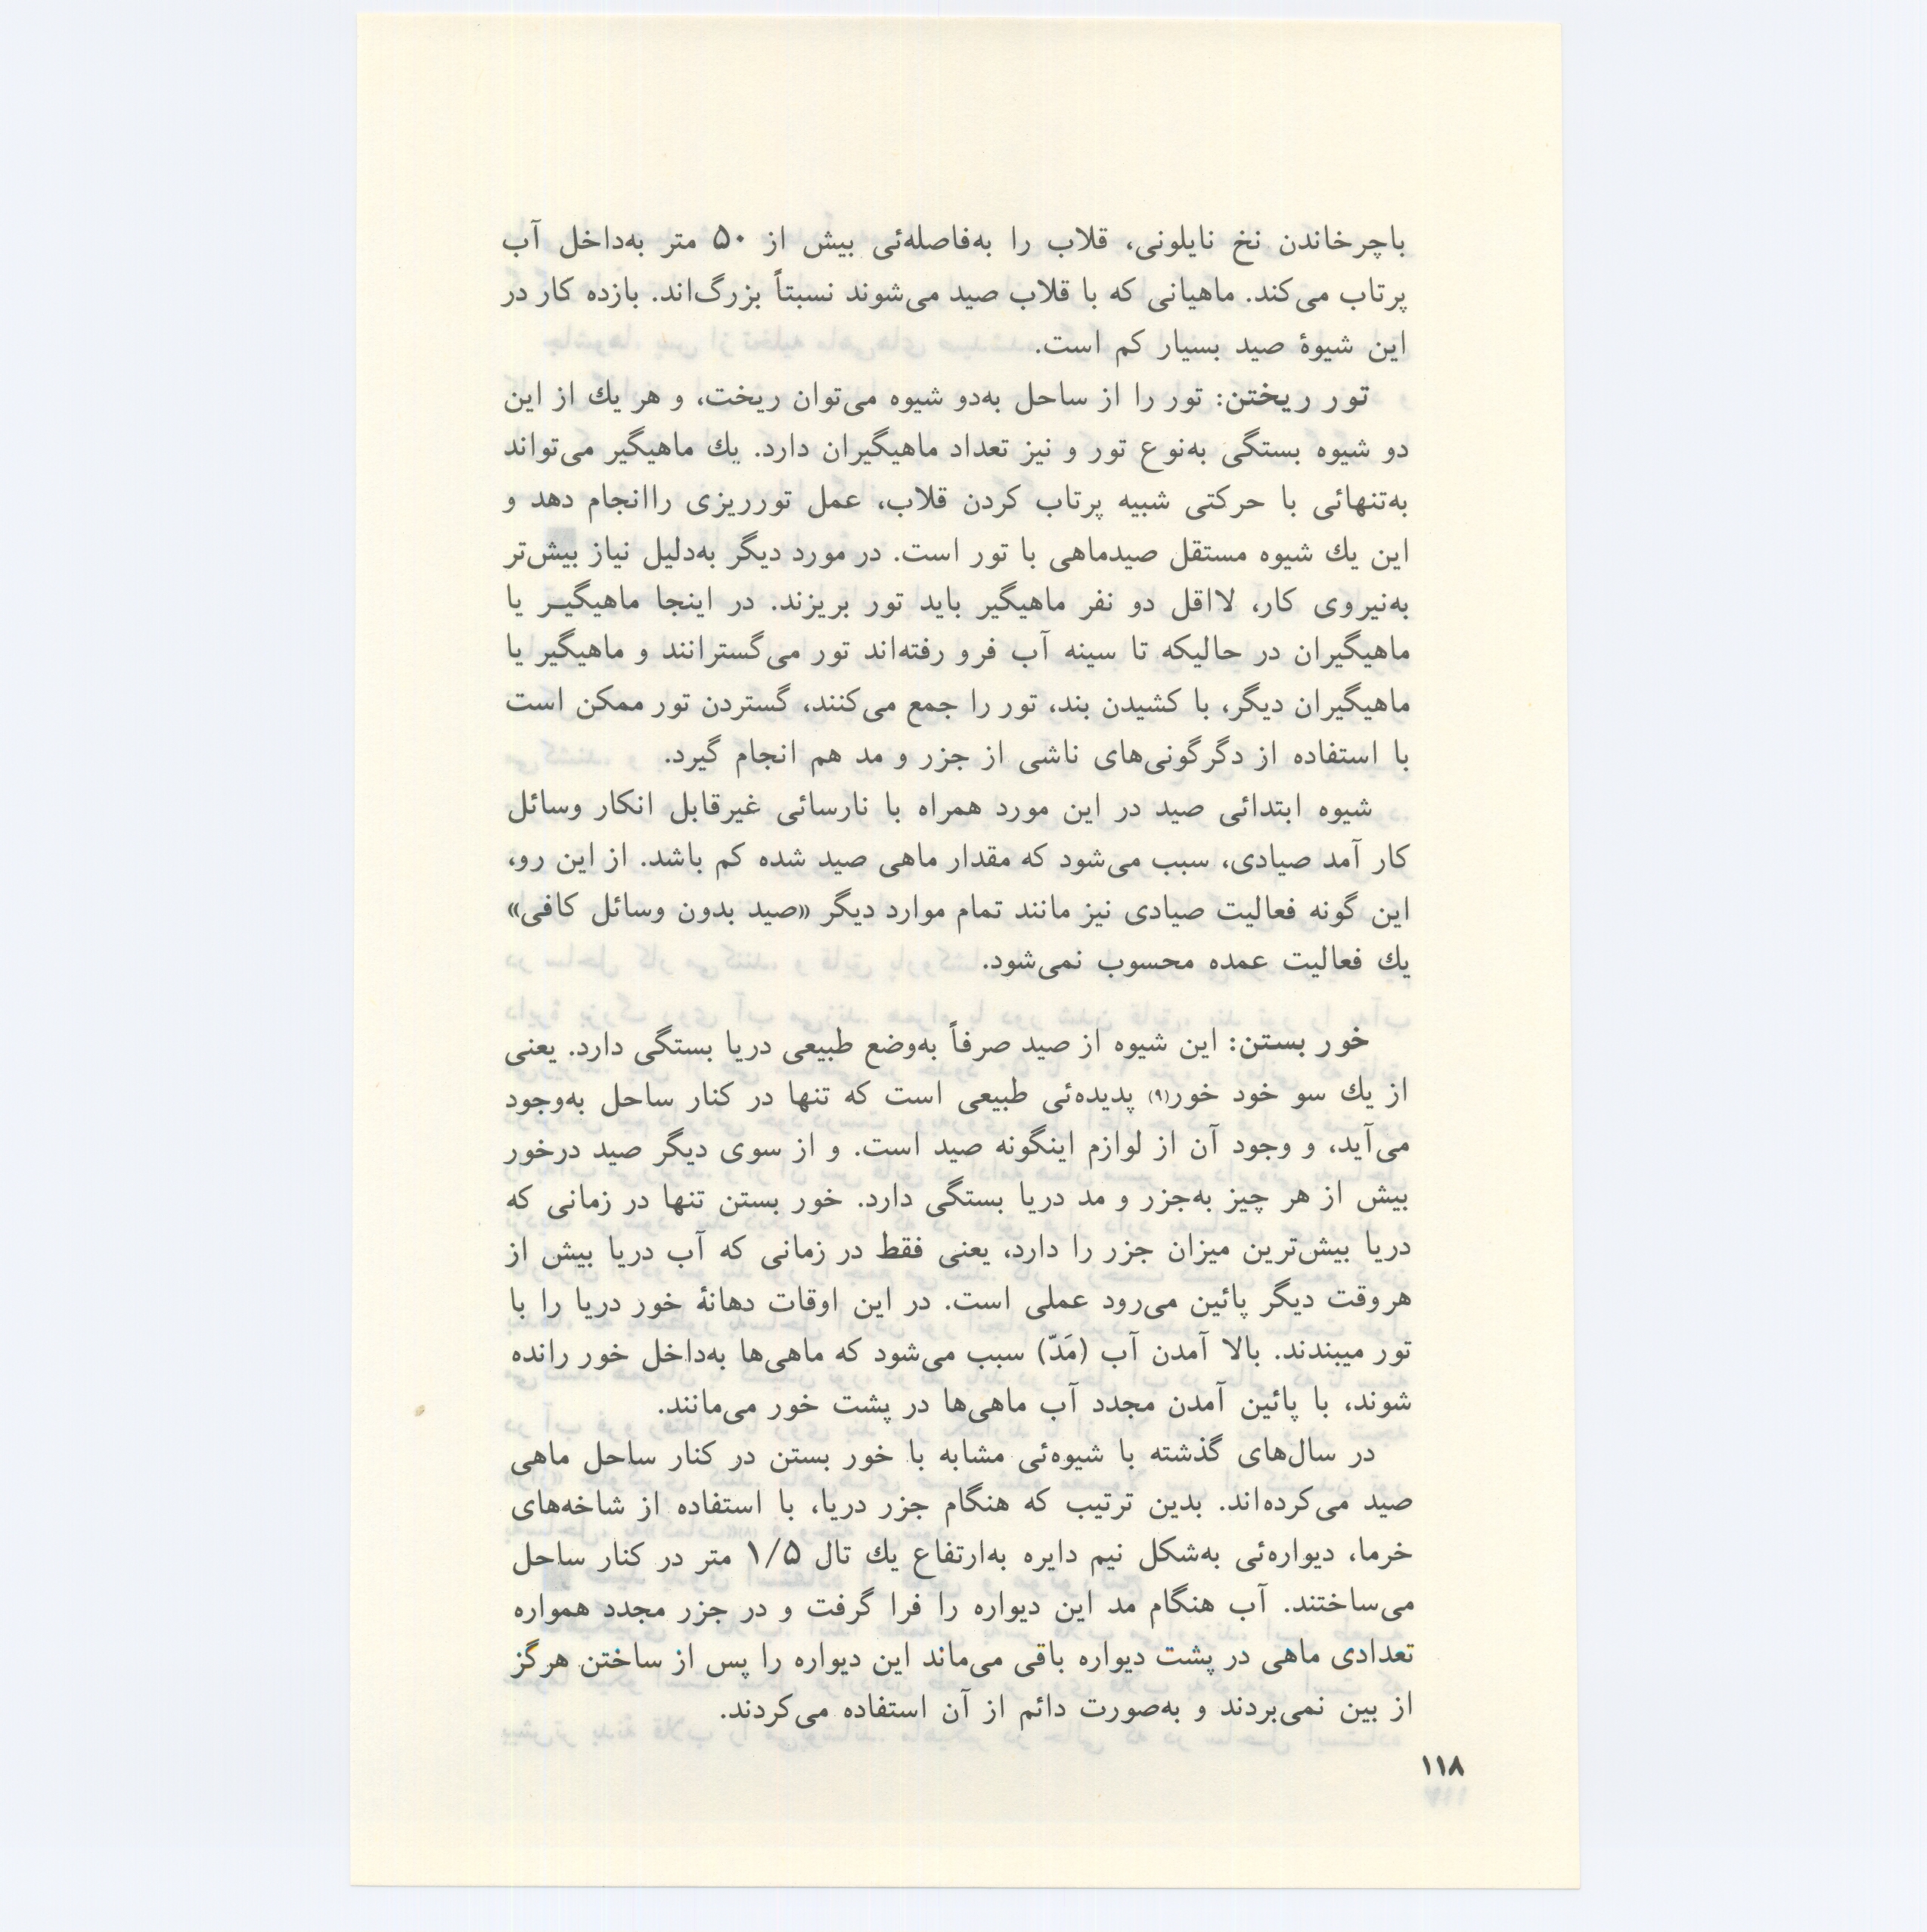 باچرخاندن نخ نایلونی، قلاب را به‌فاصله‌ئی بیش از ۵۰ متر به‌داخل آب
پرتاب می‌کند. ماهیانی که با قلاب صید می‌شوند نسبتاً بزرگ‌اند. بازده کار در
این شیوهٔ صید بسیار کم است.
تور ریختن: تور را از ساحل به‌دو شیوه می‌توان ریخت، و هر یك از این
دو شیوه بستگی به‌نوع تور و نیز تعداد ماهیگیران دارد. یك ماهیگیر می‌تواند
به‌تنهائی با حرکتی شبیه پرتاب کردن قلاب، عمل تورریزی راانجام دهد و
این یك شیوه مستقل صیدماهی با تور است. در مورد دیگر به‌دلیل نیاز بیش‌تر
به‌نیروی کار، لااقل دو نفر ماهیگیر باید تور بریزند. در اینجا ماهیگیـر یا
ماهیگیران در حالیکه تا سینه آب فرو رفته‌اند تور می‌گسترانند و ماهیگیر یا
ماهیگیران دیگر، با کشیدن بند، تور را جمع می‌کنند، گستردن تور ممکن است
با استفاده از دگرگونی‌های ناشی از جزر و مد هم انجام گیرد.
شیوه ابتدائی صید در این مورد همراه با نارسائی غیرقابل انکار وسائل
کار آمد صیادی، سبب می‌شود که مقدار ماهی صید شده کم باشد. از این رو،
این گونه فعالیت صیادی نیز مانند تمام موارد دیگر «صید بدون وسائل کافی»
یك فعالیت عمده محسوب نمی‌شود.
خور بستن: این شیوه از صید صرفاً به‌وضع طبیعی دریا بستگی دارد. یعنی
از یك سو خود خور(۹) پدیده‌ئی طبیعی است که تنها در کنار ساحل به‌وجود
می‌آید، و وجود آن از لوازم اینگونه صید است. و از سوی دیگر صید درخور
بیش از هر چیز به‌جزر و مد دریا بستگی دارد. خور بستن تنها در زمانی که
دریا بیش‌ترین میزان جزر را دارد، یعنی فقط در زمانی که آب دریا بیش از
هروقت دیگر پائین می‌رود عملی است. در این اوقات دهانهٔ خور دریا را با
تور میبندند. بالا آمدن آب (مَدّ) سبب می‌شود که ماهی‌ها به‌داخل خور رانده
شوند، با پائین آمدن مجدد آب ماهی‌ها در پشت خور می‌مانند.
در سال‌های گذشته با شیوه‌ئی مشابه با خور بستن در کنار ساحل ماهی
صید می‌کرده‌اند. بدین ترتیب که هنگام جزر دریا، با استفاده از شاخه‌های
خرما، دیواره‌ئی به‌شکل نیم دایره به‌ارتفاع یك تال ۱/۵ متر در کنار ساحل
می‌ساختند. آب هنگام مد این دیواره را فرا گرفت و در جزر مجدد همواره
تعدادی ماهی در پشت دیواره باقی می‌ماند این دیواره را پس از ساختن هرگز
از بین نمی‌بردند و به‌صورت دائم از آن استفاده می‌کردند.
۱۱۸